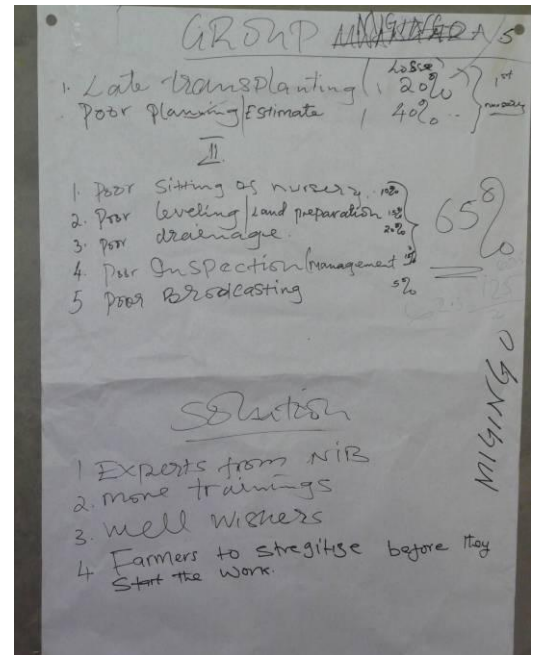 GROUP 5
(Losse)
1. Late transplanting , 20% 1st
Poor planning/Estimate , 40% nursery
II
1. Poor Sitting of nursery. 10%
2. Poor leveling/land preparation 15%
3. Poor drainague. 20%
4. Poor Inspection/management 15%
5 Poor Brodcasting 5%
65%
MIGINGO
Solution
1 Experts from NIB
2. more trainings
3. Well wishers
4 Farmers to stregitise before they
Start the work.